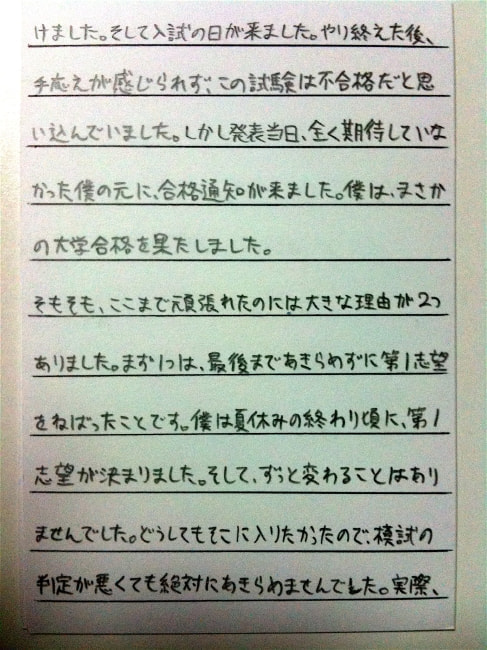 けました。そして入試の日が来ました。やり終えた後、
手応えが感じられず、この試験は不合格だと思
い込んでいました。しかし発表当日、全く期待していな
かった僕の元に、合格通知が来ました。僕は、まさか
の大学合格を果たしました。
そもそも、ここまで頑張れたのには大きな理由が2つ
ありました。まず1つは、最後まであきらめずに第1志望
をねばったことです。僕は夏休みの終わり頃に、第1
志望が決まりました。そして、ずっと変わることはあり
ませんでした。どうしてもそこに入りたかったので、模試の
判定が悪くても絶対にあきらめませんでした。実際、